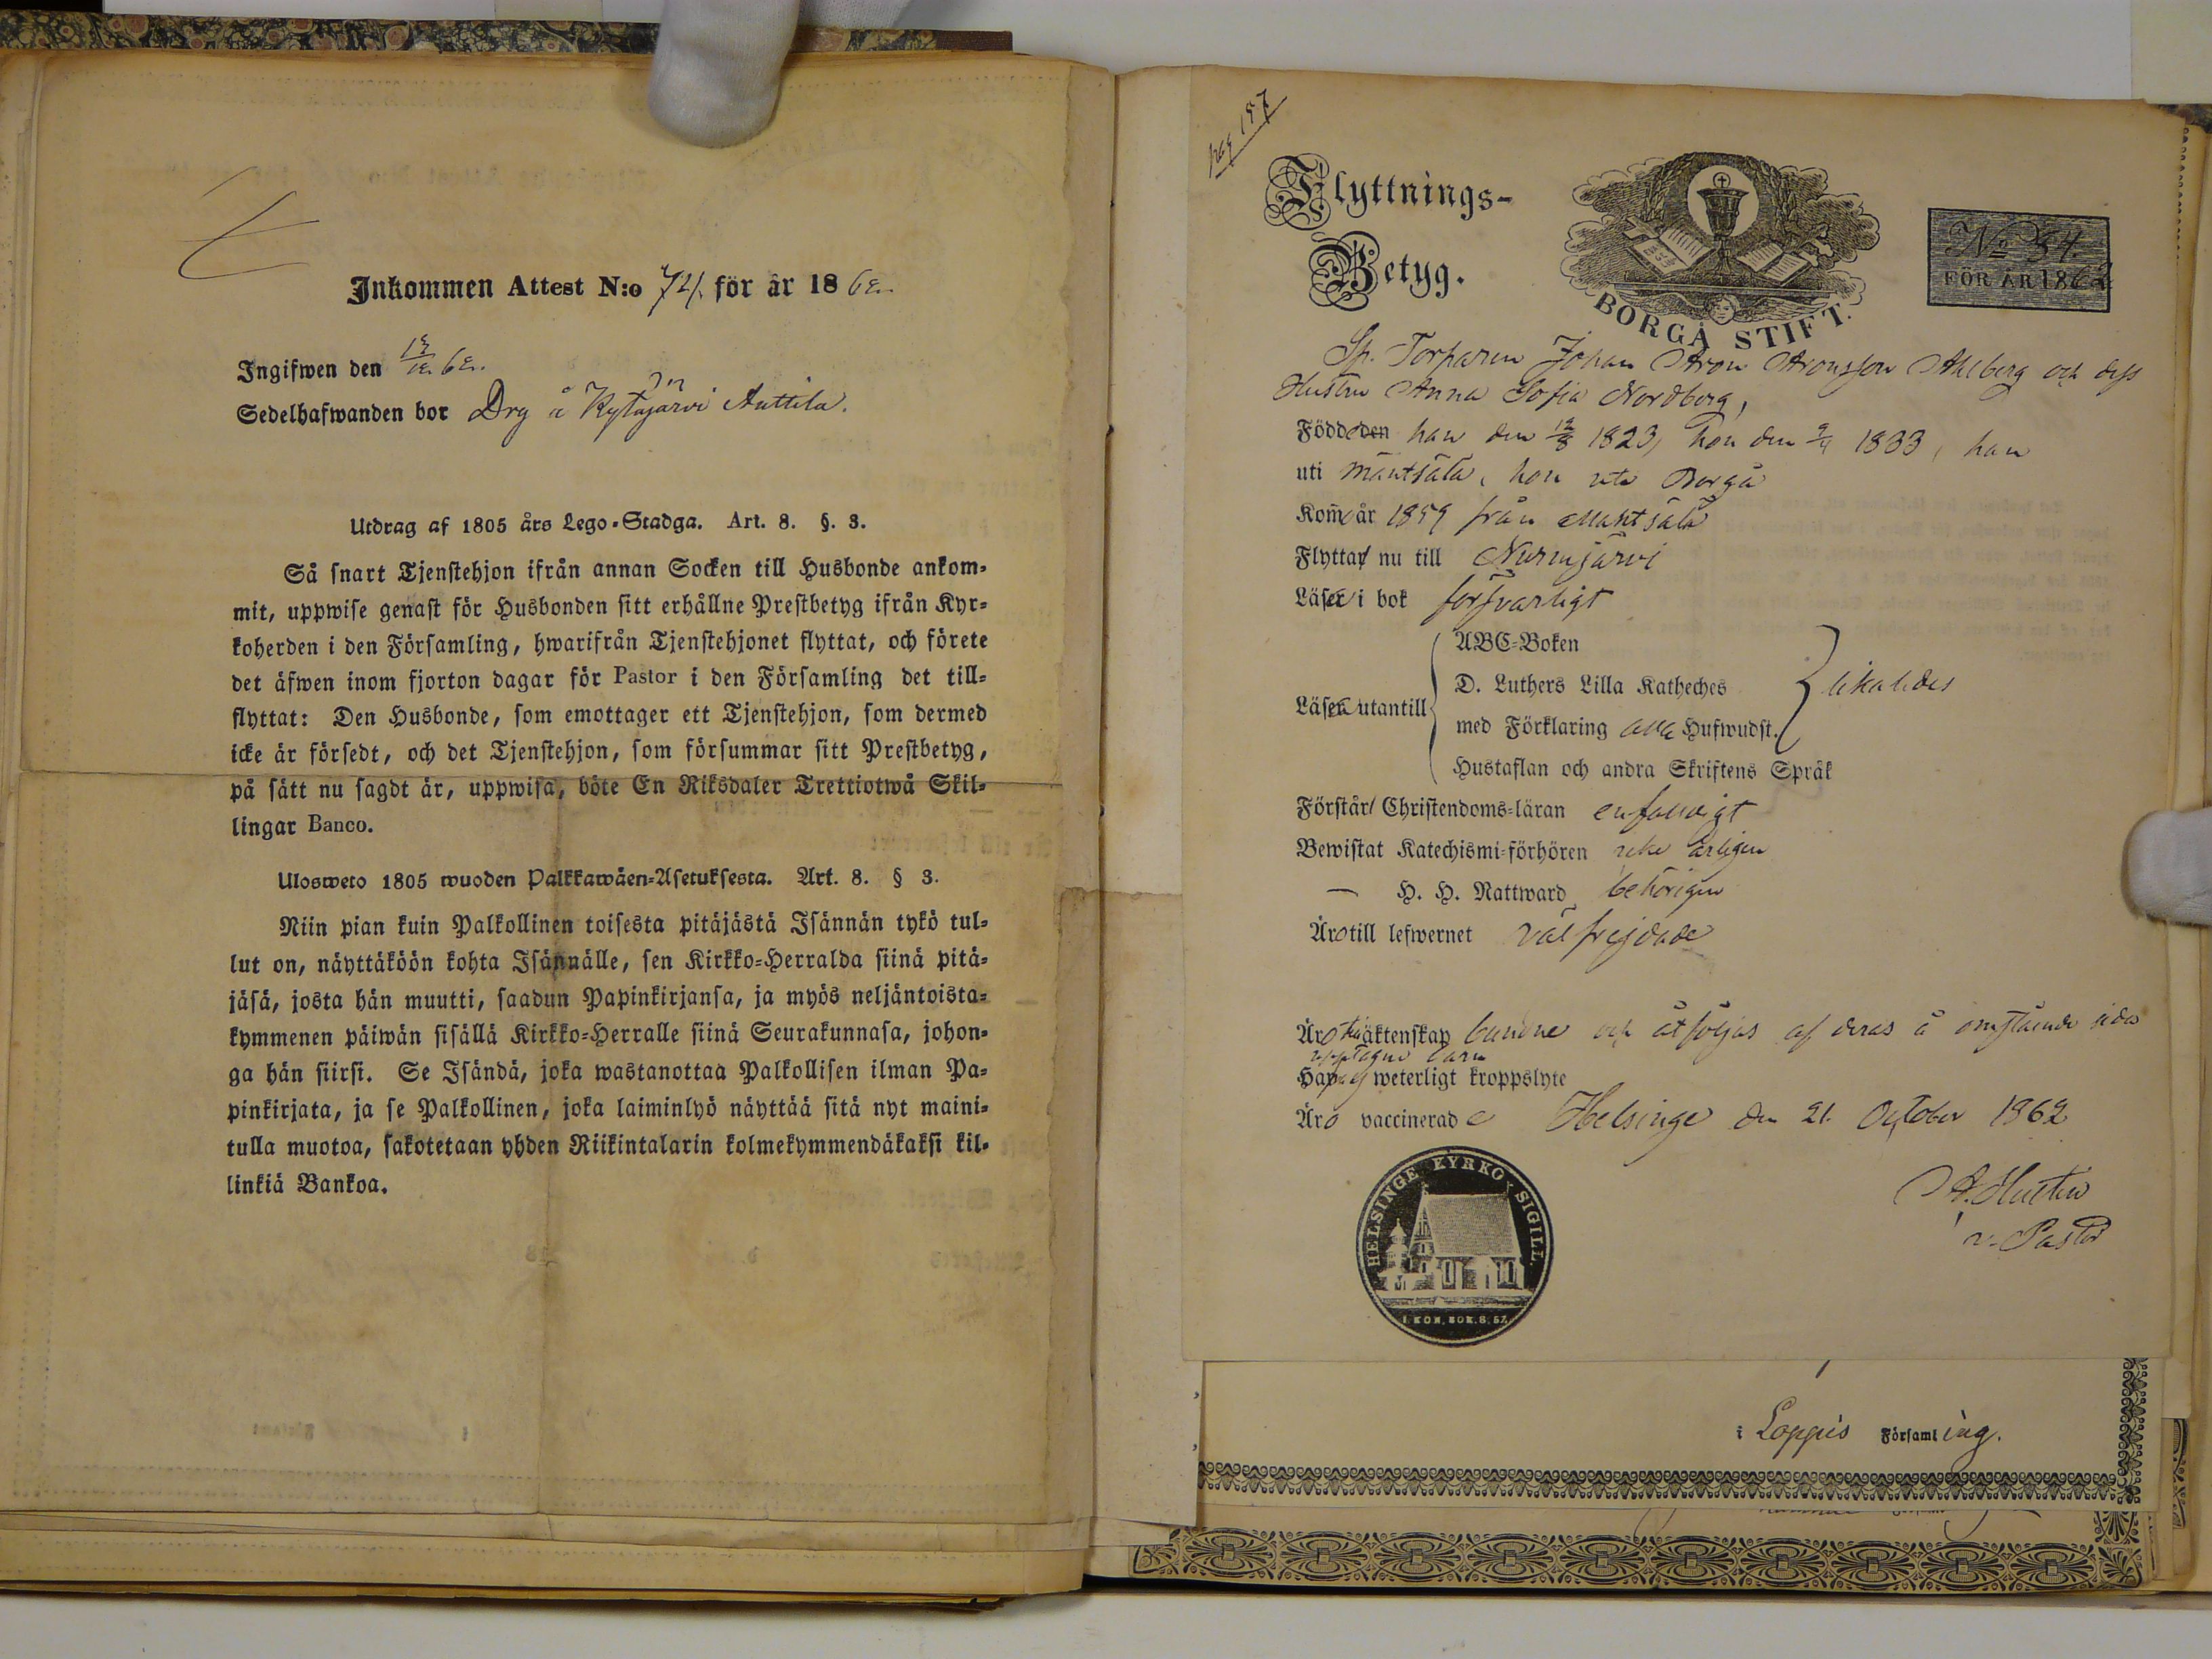 Inkommen Attest N:o 724. för år 1862.
Ingifwen den 62.
Sedelhafwanden bor Drg å Kytäjärvi Anttila.
Utdrag af 1805 års Lego-Stadga. Art. 8. §. 3.
Så snart Tjenstehjon ifrån annan Socken till Husbonde ankom-
mit, uppwise genast för Husbonden sitt erhållne Prestbetyg ifrån Kyr-
koherden i den Församling, hwarifrån Tjenstehjonet flyttat, och förete
det äfwen inom fjorton dagar för Pastor i den Församling det till-
flyttat: Den Husbonde, som emottager ett Tjenstehjon, som dermed
icke är försedt, och det Tjenstehjon, som försummar sitt Prestbetyg,
på sätt nu sagdt är, uppwisa, böte En Riksdaler Trettiotwå Skil-
lingar Banco.
Ulosweto 1805 wuoden Palkkawäen-Asetuksesta. Art. 8. § 3.
Niin pian kuin Palkollinen toisesta pitäjästä Isännän tykö tul-
lut on, näyttäköön kohta Isännälle, sen Kirkko-Herralda siinä pitä-
jäsä, josta hän muutti, saadun Papinkirjansa, ja myös neljäntoista-
kymmenen päiwän sisällä Kirkko-Herralle siinä Seurakunnasa, johon-
ga hän siirsi. Se Isändä, joka wastanottaa Palkollisen ilman Pa-
pinkirjata, ja se Palkollinen, joka laiminlyö näyttää sitä nyt maini-
tulla muotoa, sakotetaan yhden Riikintalarin kolmekymmendäkaksi kil-
linkiä Bankoa.
pag 197
Flyttnings-
Betyg.
BORGÅ STIFT.
No 54.
FÖR ÅR 1862
Sp. Torparen Johan Aron Aronsson Ahlberg och dess
Hustru Anna Sofia Nordberg,
Födde den han den 12/8 1823, hon den 1833, han
uti Mäntsälä, hon uti Borgå
Kom̄o år 1859 från Mäntsälä
Flytta nu till Nurmijärvi
Läsa i bok försvarligt
ABC-Boken
D. Luthers Lilla Katheches
Läsa utantill med Förklaring alla Hufwudst. likaledes
Hustaflan och andra Skriftens Språk
Förstår Christendoms-läran enfaldigt
Bewistat Katechismi-förhören icke årligen
— H. H. Nattward behörigen
Äro till lefwernet välfrejdade
Äro till äktenskap bundne och åtföljas af deras å omstående sida
upptagne barn
Hafwa ej weterligt kroppslyte
Äro vaccinerade Helsinge den 21 October 1862
A. Hustin
v. Pastor
HELSINGE KYRKO SIGILL
1. KON. BOK. 8. 57.
i Loppis Församling.